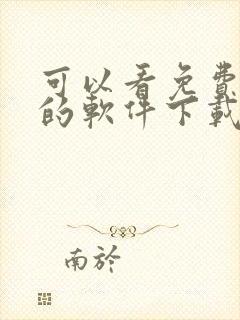 可以看免費
的軟件下載
南於